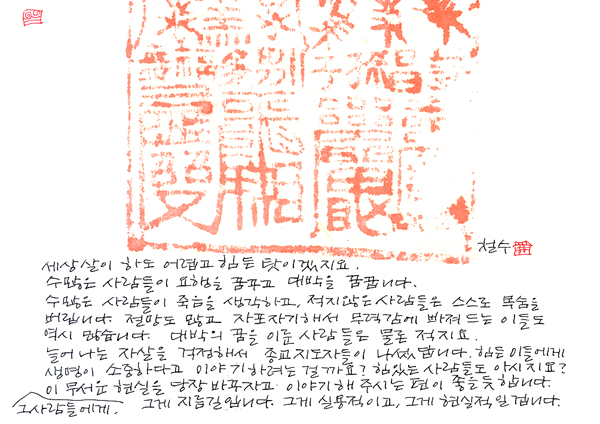 철수
세상살이 하도 어렵고 힘든 탓이겠지요.
수많은 사람들이 요행을 꿈꾸고 대박을 꿈꿉니다.
수많은 사람들이 죽음을 생각하고, 적지않은 사람들은 스스로 목숨을
버립니다. 절망도 많고 자포자기해서 무력감에 빠져 드는 이들도
역시 많습니다. 대박의 꿈을 이룬 사람들은 물론 적지요.
늘어나는 자살을 걱정해서 종교지도자들이 나섰답니다. 힘든 이들에게
생명이 소중하다고 이야기하려는 걸까요? 힘있는 사람들도 아시지요?
이 무서운 현실을 당장 바꾸자고 이야기해 주시는 편이 좋을듯합니다.
그사람들에게. 그게 지름길입니다. 그게 실용적이고, 그게 현실적일겁니다.